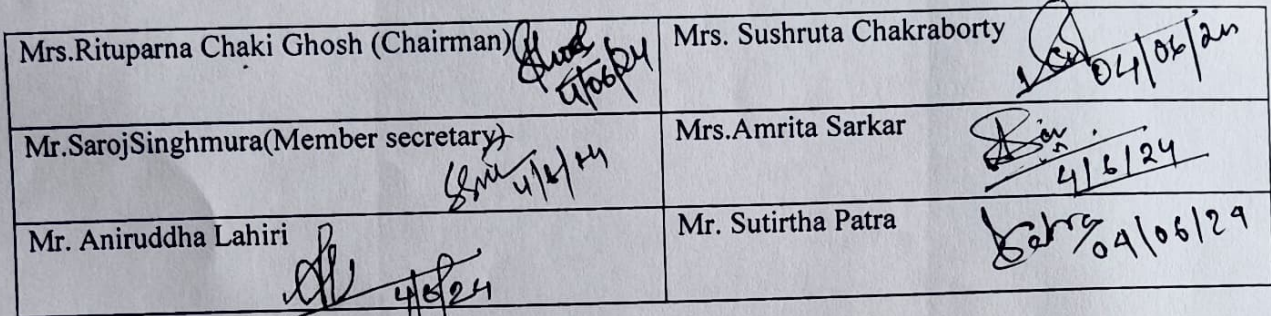 Mrs.Rituparna Chaki Ghosh (Chairman) 4/06/24
Mrs. Sushruta Chakraborty 04/06/24
Mr.SarojSinghmura(Member secretary) 4/6/24
Mrs.Amrita Sarkar 4/6/24
Mr. Aniruddha Lahiri 4/6/24
Mr. Sutirtha Patra 04/06/24